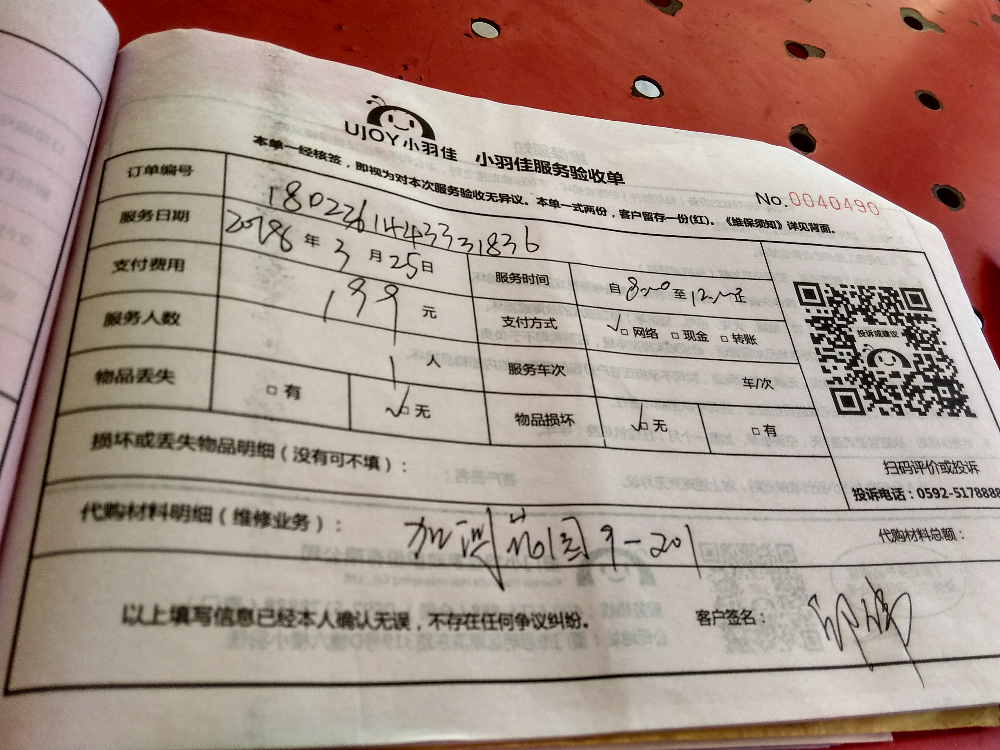 UJOY小羽佳 小羽佳服务验收单
No.0040490
本单一经核签，即视为对本次服务验收无异议。本单一式两份，客户留存一份(红)。《维保须知》详见背面。
订单编号 1802261443331836
服务日期 2018 年 3 月 25 日 服务时间 自 8:00 至 12:00 止
支付费用 199 元 支付方式 √□网络 □现金 □转账
服务人数 1 人 服务车次 车/次
物品丢失 □有 √□无 物品损坏 √□无 □有
投诉或建议
扫码评价或投诉
投诉电话：0592-5178888
损坏或丢失物品明细（没有可不填）：
代购材料明细（维修业务）： 9-201 代购材料总额：
以上填写信息已经本人确认无误，不存在任何争议纠纷。 客户签名：